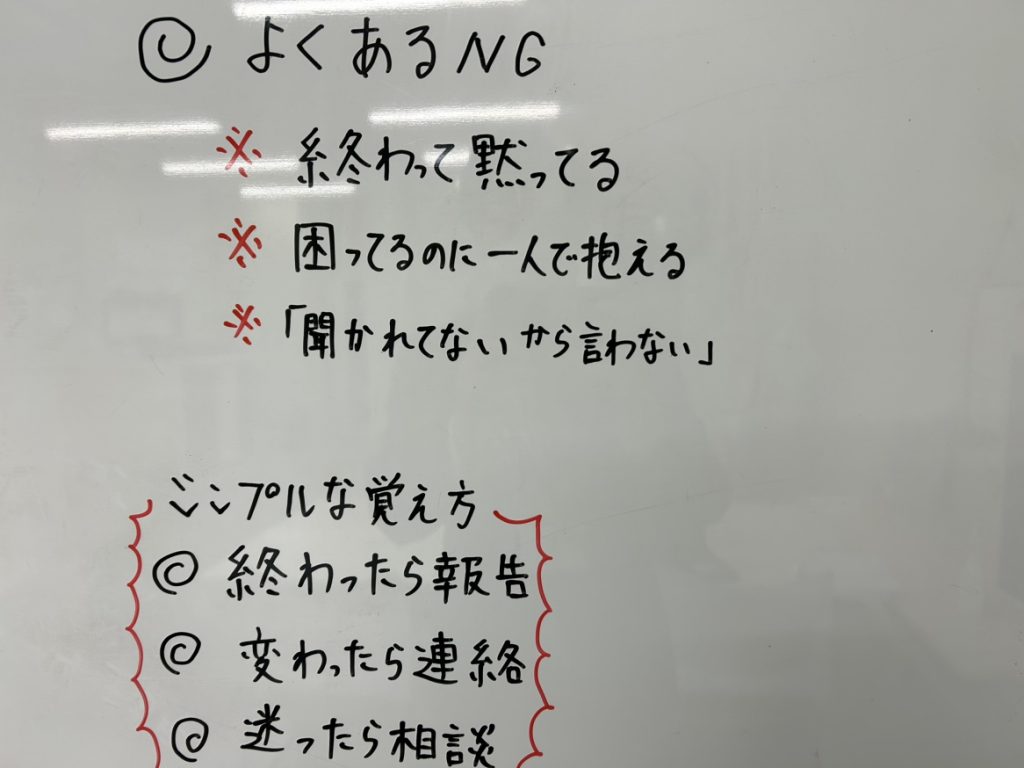 ◎ よくあるNG
※ 終わって黙ってる
※ 困ってるのに一人で抱える
※ 「聞かれてないから言わない」
シンプルな覚え方
◎ 終わったら報告
◎ 変わったら連絡
◎ 迷ったら相談